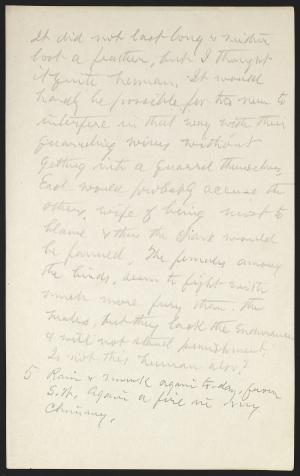 It did not last long & neither
lost a feather, but I thought
it quite human. It would
hardly be possible for two men to
interfere in that way with their
quarreling wives without
getting into a quarrel themselves.
Each would probably accuse the
others wife of being most to
blame & thus the would
be fanned. The females among
the birds, seem to fight with
much more fury than the
males, but they lack the endurance
& will not stand punishment.
Is not this human also?
5 Rain & smoke again to-day, from
S.W. Again a fire in my
Chimney.